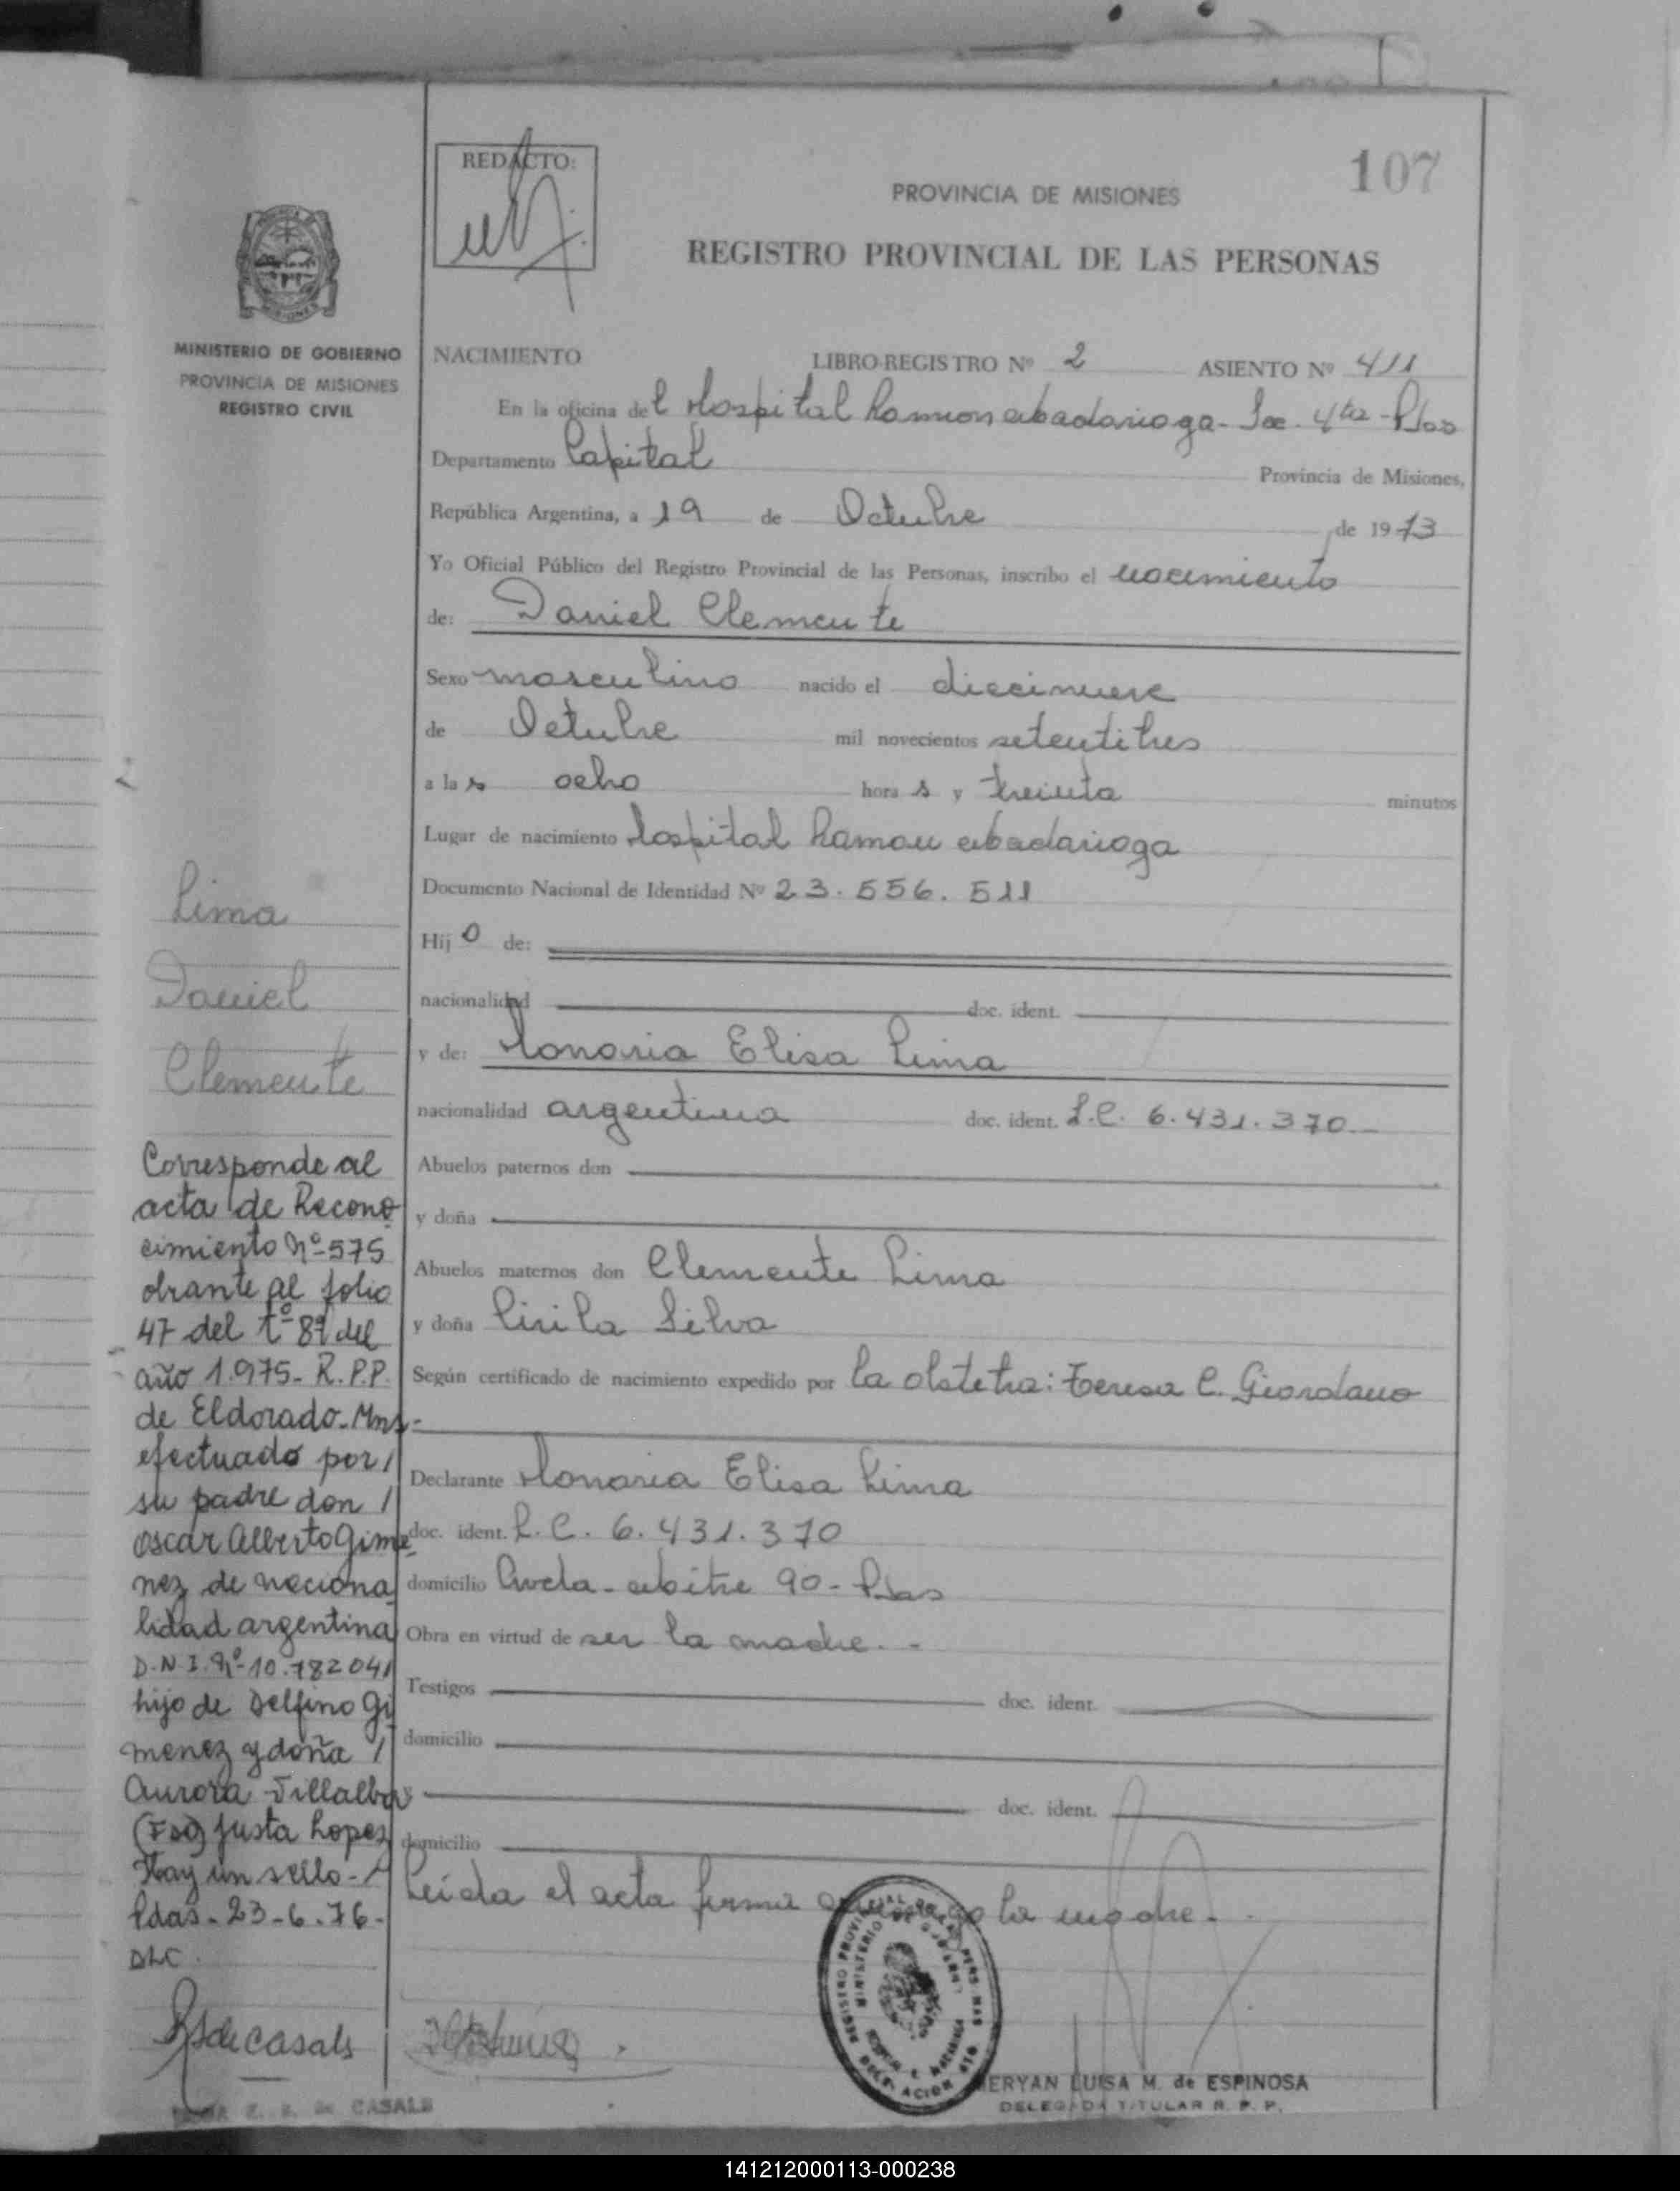 107
REDACTO:
PROVINCIA DE MISIONES
REGISTRO PROVINCIAL DE LAS PERSONAS
MINISTERIO DE GOBIERNO
PROVINCIA DE MISIONES
REGISTRO CIVIL
NACIMIENTO LIBRO-REGISTRO Nº 2 ASIENTO Nº 411
En la oficina del Hospital Ramon Madariaga - Sec. 4ta - Pdas
Departamento Capital Provincia de Misiones,
República Argentina, a 19 de Octubre de 1973
Yo Oficial Público del Registro Provincial de las Personas, inscribo el nacimiento
de: Daniel Clemente
Sexo masculino nacido el diecinueve
de Octubre mil novecientos setentitres
a las ocho horas y treinta minutos
Lugar de nacimiento Hospital Ramon Madariaga
Documento Nacional de Identidad Nº 23.556.511
Hijo de:
nacionalidad doc. ident.
y de: Honoria Elisa Lima
nacionalidad argentina doc. ident. L.C. 6.431.370
Abuelos paternos don
y doña
Abuelos maternos don Clemente Lima
y doña Cirila Silva
Según certificado de nacimiento expedido por la obstetra: Teresa C. Giordano
Declarante Honoria Elisa Lima
doc. ident. L.C. 6.431.370
domicilio Avda - Mitre 90 - Pdas
Obra en virtud de ser la madre. -
Testigos doc. ident.
domicilio
doc. ident.
domicilio
Leída el acta firma conmigo la madre. -
Lima
Daniel
Clemente
Corresponde al
acta de Recono
cimiento Nº 575
obrante al folio
47 del tº 8º del
año 1.975 - R.P.P.
de Eldorado - Mns -
efectuado por /
su padre don /
Oscar Alberto Gime
nez de naciona
lidad argentina
D.N.I. Nº 10.782041
hijo de Delfino Gi
menez y doña /
Aurora Villalba
(Fdo) Justa Lopez
Hay un sello -
Pdas - 23-6-76 -
DLC.
de Casals
de CASALS
MERYAN LUISA M. de ESPINOSA
DELEGADA TITULAR R. P. P.
141212000113-000238